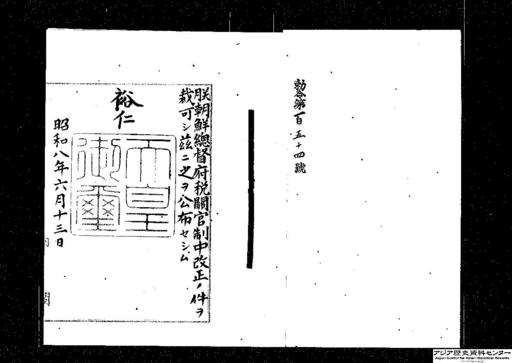 勅令第百五十四號
朕朝鮮總督府税關官制中改正ノ件ヲ
裁可シ茲ニ之ヲ公布セシム
裕仁
天皇
御璽
昭和八年六月十三日
内閣
アジア歴史資料センター
Japan Center for Asian Historical Records